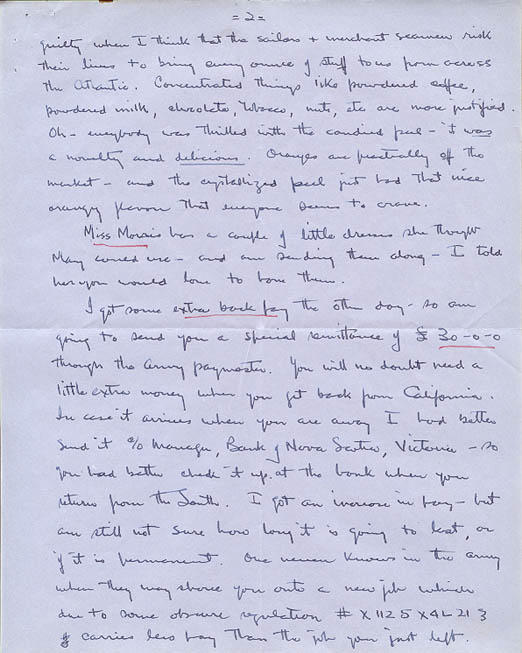 = 2 =
guilty when I think that the sailors + merchant seamen risk
their lives to bring every ounce of stuff to us from across
the Atlantic. Concentrated things like powdered coffee,
powdered milk, chocolate, tobacco, nuts, etc are more justified.
Oh - everybody was thrilled with the candied peel - it was
a novelty and delicious. Oranges are practically off the
market - and the crystallized peel just had that nice
orangy flavour that everyone seems to crave.
Miss Morris has a couple of little dresses she thought
Mary could use - and am sending them along - I told
her you would love to have them.
I got some extra back pay the other day - so am
going to send you a special remittance of £ 30-0-0
through the army paymaster. You will no doubt need a
little extra money when you get back from California.
In case it arrives when you are away I had better
send it c/o Manager, Bank of Nova Scotia, Victoria - so
you had better check it up at the bank when you
return from the South. I got an increase in pay - but
am still not sure how long it is going to last, or
if it is permanent. One never knows in the army
when they may shove you onto a new job which
due to some obscure regulation # X1125X4L213
carries less pay than the job you just left.